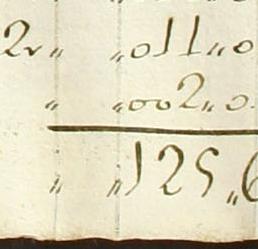 2r " "011"0
" "002"0
" "125"6